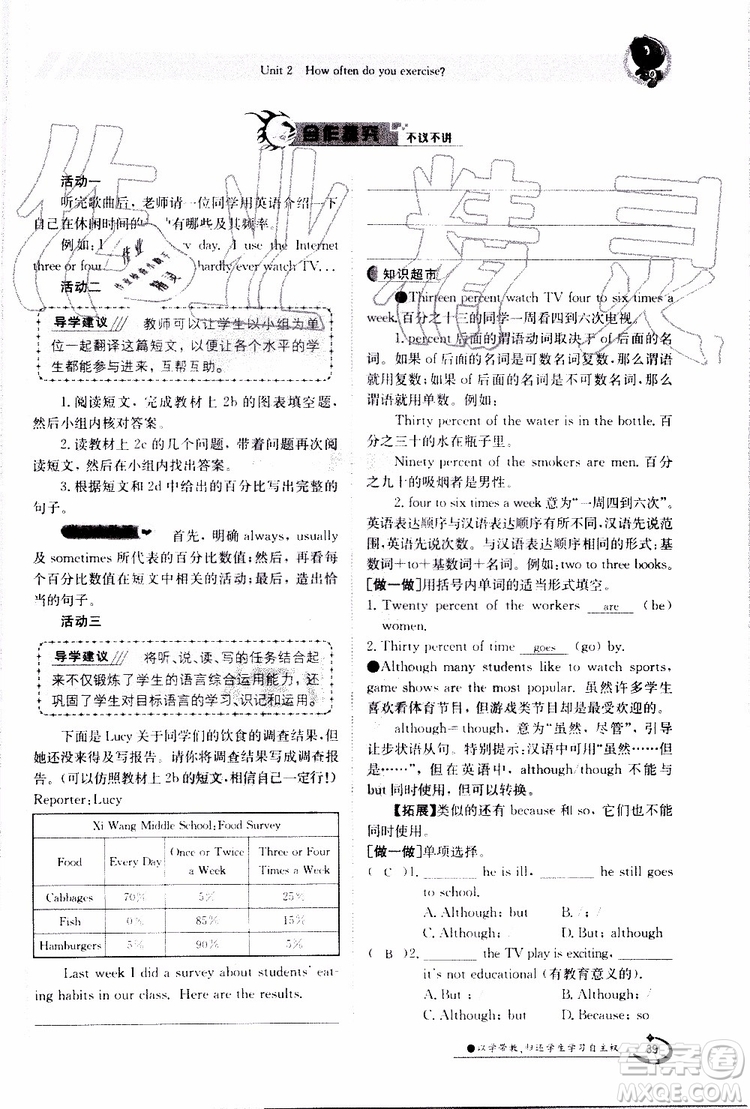 Unit 2 How often do you exercise?
合作探究 不议不讲
活动一
听完歌曲后，老师请一位同学用英语介绍一下
自己在休闲时间的 有哪些及其频率。
例如：I y day. I use the Internet
three or four hardly ever watch TV...
活动二
导学建议 教师可以让学生以小组为单
位一起翻译这篇短文，以便让各个水平的学
生都能参与进来，互帮互助。
1.阅读短文，完成教材上 2b 的图表填空题，
然后小组内核对答案。
2.读教材上 2c 的几个问题，带着问题再次阅
读短文，然后在小组内找出答案。
3.根据短文和 2d 中给出的百分比写出完整的
句子。
首先，明确 always, usually
及 sometimes 所代表的百分比数值；然后，再看每
个百分比数值在短文中相关的活动；最后，造出恰
当的句子。
活动三
导学建议 将听、说、读、写的任务结合起
来不仅锻炼了学生的语言综合运用能力，还
巩固了学生对目标语言的学习、识记和运用。
下面是 Lucy 关于同学们的饮食的调查结果，
她还没来得及写报告。请你将调查结果写成调查报
告。(可以仿照教材上 2b 的短文，相信自己一定行！)
Reporter: Lucy
Xi Wang Middle School: Food Survey
Food Every Day Once or Twice a Week Three or Four Times a Week
Cabbages 70% 5% 25%
Fish 0% 85% 15%
Hamburgers 5% 90% 5%
Last week I did a survey about students' eat-
ing habits in our class. Here are the results.
知识超市
●Thirteen percent watch TV four to six times a
week.百分之十三的同学一周看四到六次电视。
1. percent 后面的谓语动词取决于 of 后面的名
词。如果 of 后面的名词是可数名词复数，那么谓语
就用复数；如果 of 后面的名词是不可数名词，那么
谓语就用单数。例如：
Thirty percent of the water is in the bottle. 百
分之三十的水在瓶子里。
Ninety percent of the smokers are men. 百分
之九十的吸烟者是男性。
2. four to six times a week 意为“一周四到六次”。
英语表达顺序与汉语表达顺序不同，汉语先说范
围，英语先说次数。英语中表示范围的形式：基
数词+to+基数词+名词。例如：two to three books.
[做一做]用括号内单词的适当形式填空。
1. Twenty percent of the workers are (be)
women.
2. Thirty percent of time goes (go) by.
●Although many students like to watch sports,
game shows are the most popular. 虽然许多学生
喜欢看体育节目，但游戏类节目却是最受欢迎的。
although = though，意为“虽然，尽管”，引导
让步状语从句。特别提示：汉语中可用“虽然……但
是……”，但在英语中，although/though 不能与
but 同时使用，但可以转换。
【拓展】类似的还有 because 和 so，它们也不能
同时使用。
[做一做]单项选择。
( C )1. he is ill, he still goes
to school.
A. Although; but B. /; /
C. Although; / D. But; although
( B )2. the TV play is exciting,
it's not educational (有教育意义的).
A. But; / B. Although; /
C. /; although D. Although; but
●以学带教，归还学生学习自主权
39
作业精灵
作业
精灵
答案圈
MXQE.COM